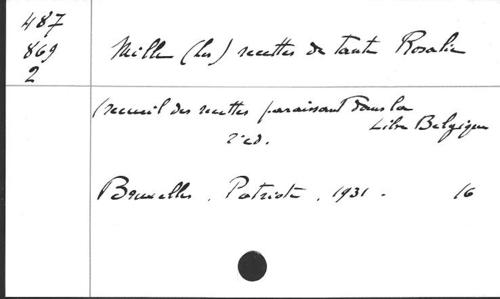 487
869
2
Mille (Les) recettes de tante Rosalie
(recueil des recettes paraissant dans la
Libre Belgique
2e ed.
Bruxelles, Patriote, 1931. 16